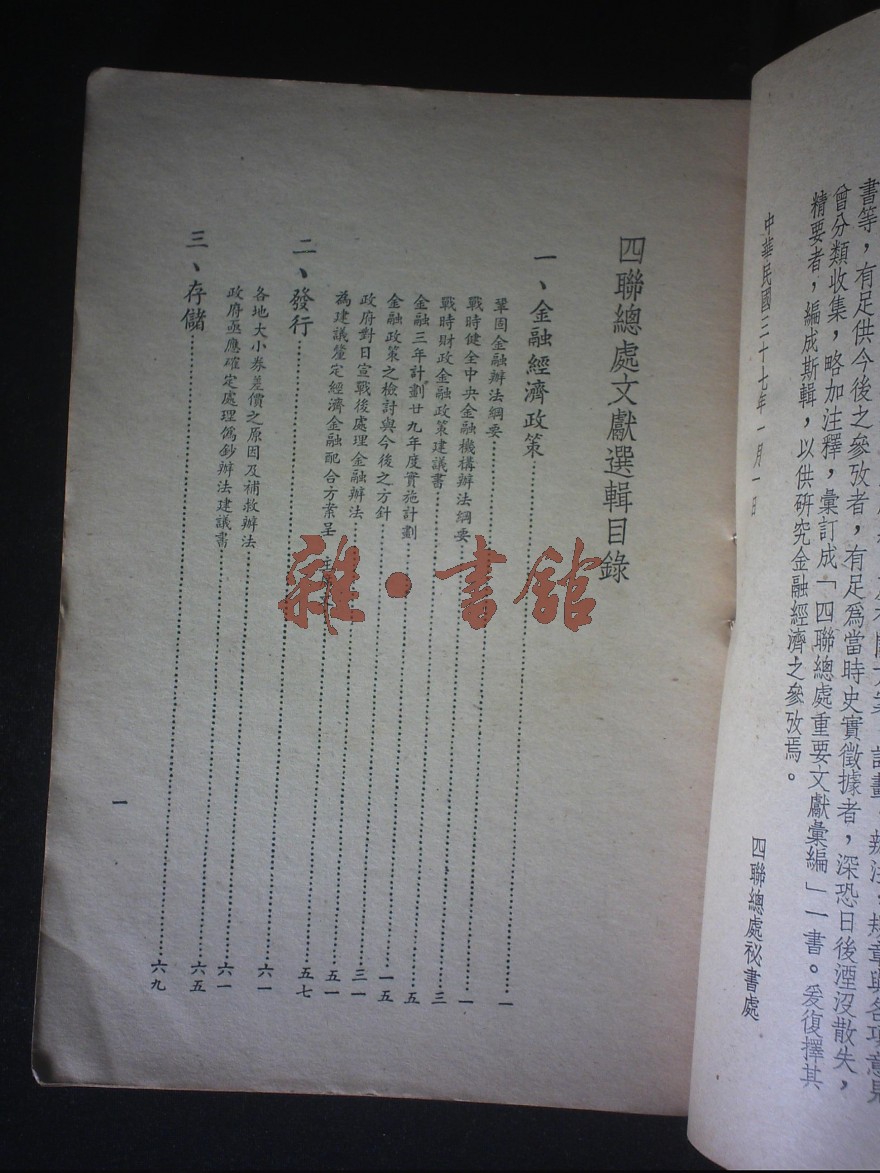 計畫、辦法、規章與各項意見
書等，有足供今後之參攷者，有足爲當時史實徵據者，深恐日後湮沒散失，
曾分類收集，略加注釋，彙訂成「四聯總處重要文獻彙編」一書。爰復擇其
精要者，編成斯輯，以供研究金融經濟之參攷焉。
中華民國三十七年一月一日 四聯總處祕書處
四聯總處文獻選輯目錄
一、金融經濟政策……一
鞏固金融辦法綱要……一
戰時健全中央金融機構辦法綱要……三
戰時財政金融政策建議書……五
金融三年計劃廿九年度實施計劃……一五
金融政策之檢討與今後之方針……三一
政府對日宣戰後處理金融辦法……五一
為建議釐定經濟金融配合方案呈 主席文……五七
二、發行……六一
各地大小券差價之原因及補救辦法……六一
政府亟應確定處理偽鈔辦法建議書……六五
三、存儲……六九
一
雜·書館